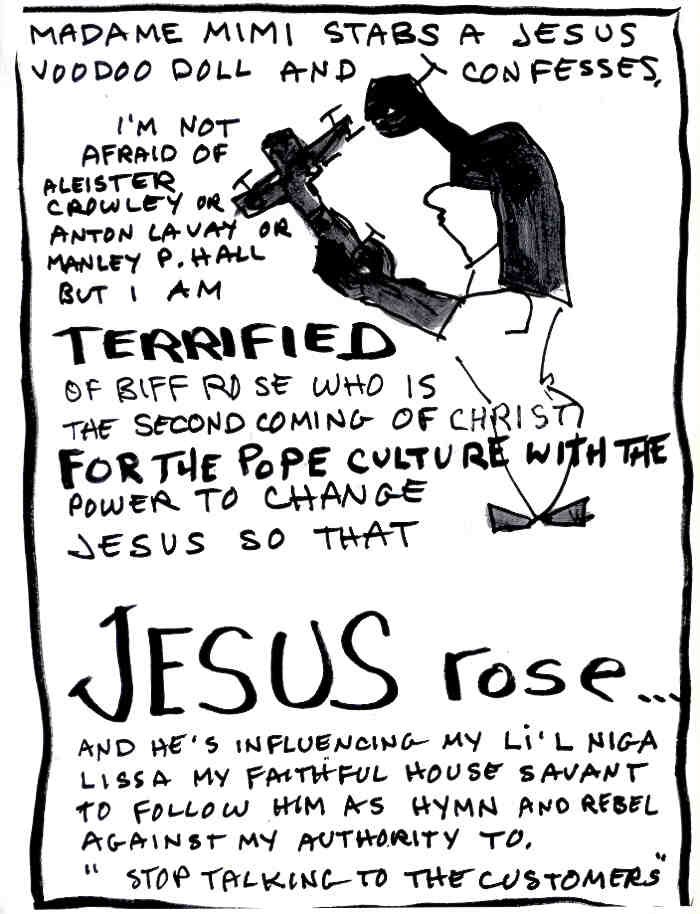 MADAME MIMI STABS A JESUS
VOODOO DOLL AND CONFESSES,
I'M NOT
AFRAID OF
ALEISTER
CROWLEY OR
ANTON LAVAY OR
MANLEY P. HALL
BUT I AM
TERRIFIED
OF BIFF ROSE WHO IS
THE SECOND COMING OF CHRIST
FOR THE POPE CULTURE WITH THE
POWER TO CHANGE
JESUS SO THAT
JESUS rose...
AND HE'S INFLUENCING MY Li'L NIGA
LISSA MY FAITHFUL HOUSE SAVANT
TO FOLLOW HIM AS HYMN AND REBEL
AGAINST MY AUTHORITY TO.
"STOP TALKING TO THE CUSTOMERS"